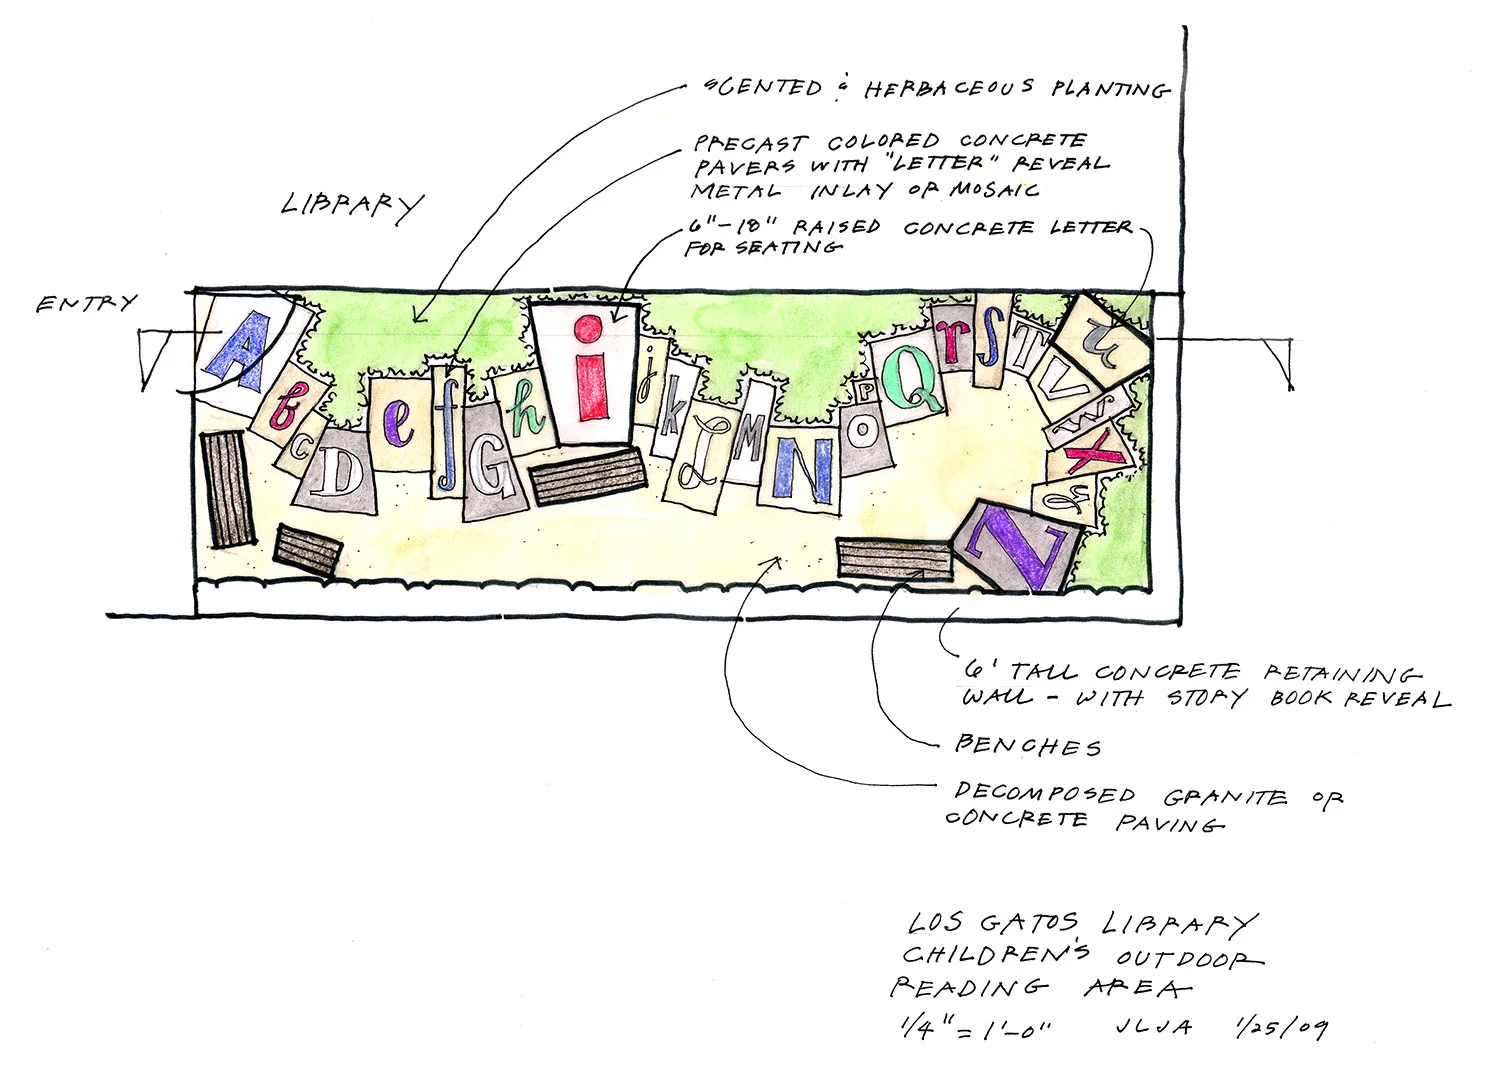 SCENTED & HERBACEOUS PLANTING
PRECAST COLORED CONCRETE
PAVERS WITH "LETTER" REVEAL
METAL INLAY OR MOSAIC
LIBRARY
6"-18" RAISED CONCRETE LETTER
FOR SEATING
ENTRY
A
b
c
D
e
f
G
h
i
j
k
L
M
N
O
P
Q
r
S
T
u
V
W
X
y
Z
6' TALL CONCRETE RETAINING
WALL - WITH STORY BOOK REVEAL
BENCHES
DECOMPOSED GRANITE OR
CONCRETE PAVING
LOS GATOS LIBRARY
CHILDREN'S OUTDOOR
READING AREA
1/4" = 1'-0" JLJA 1/25/09